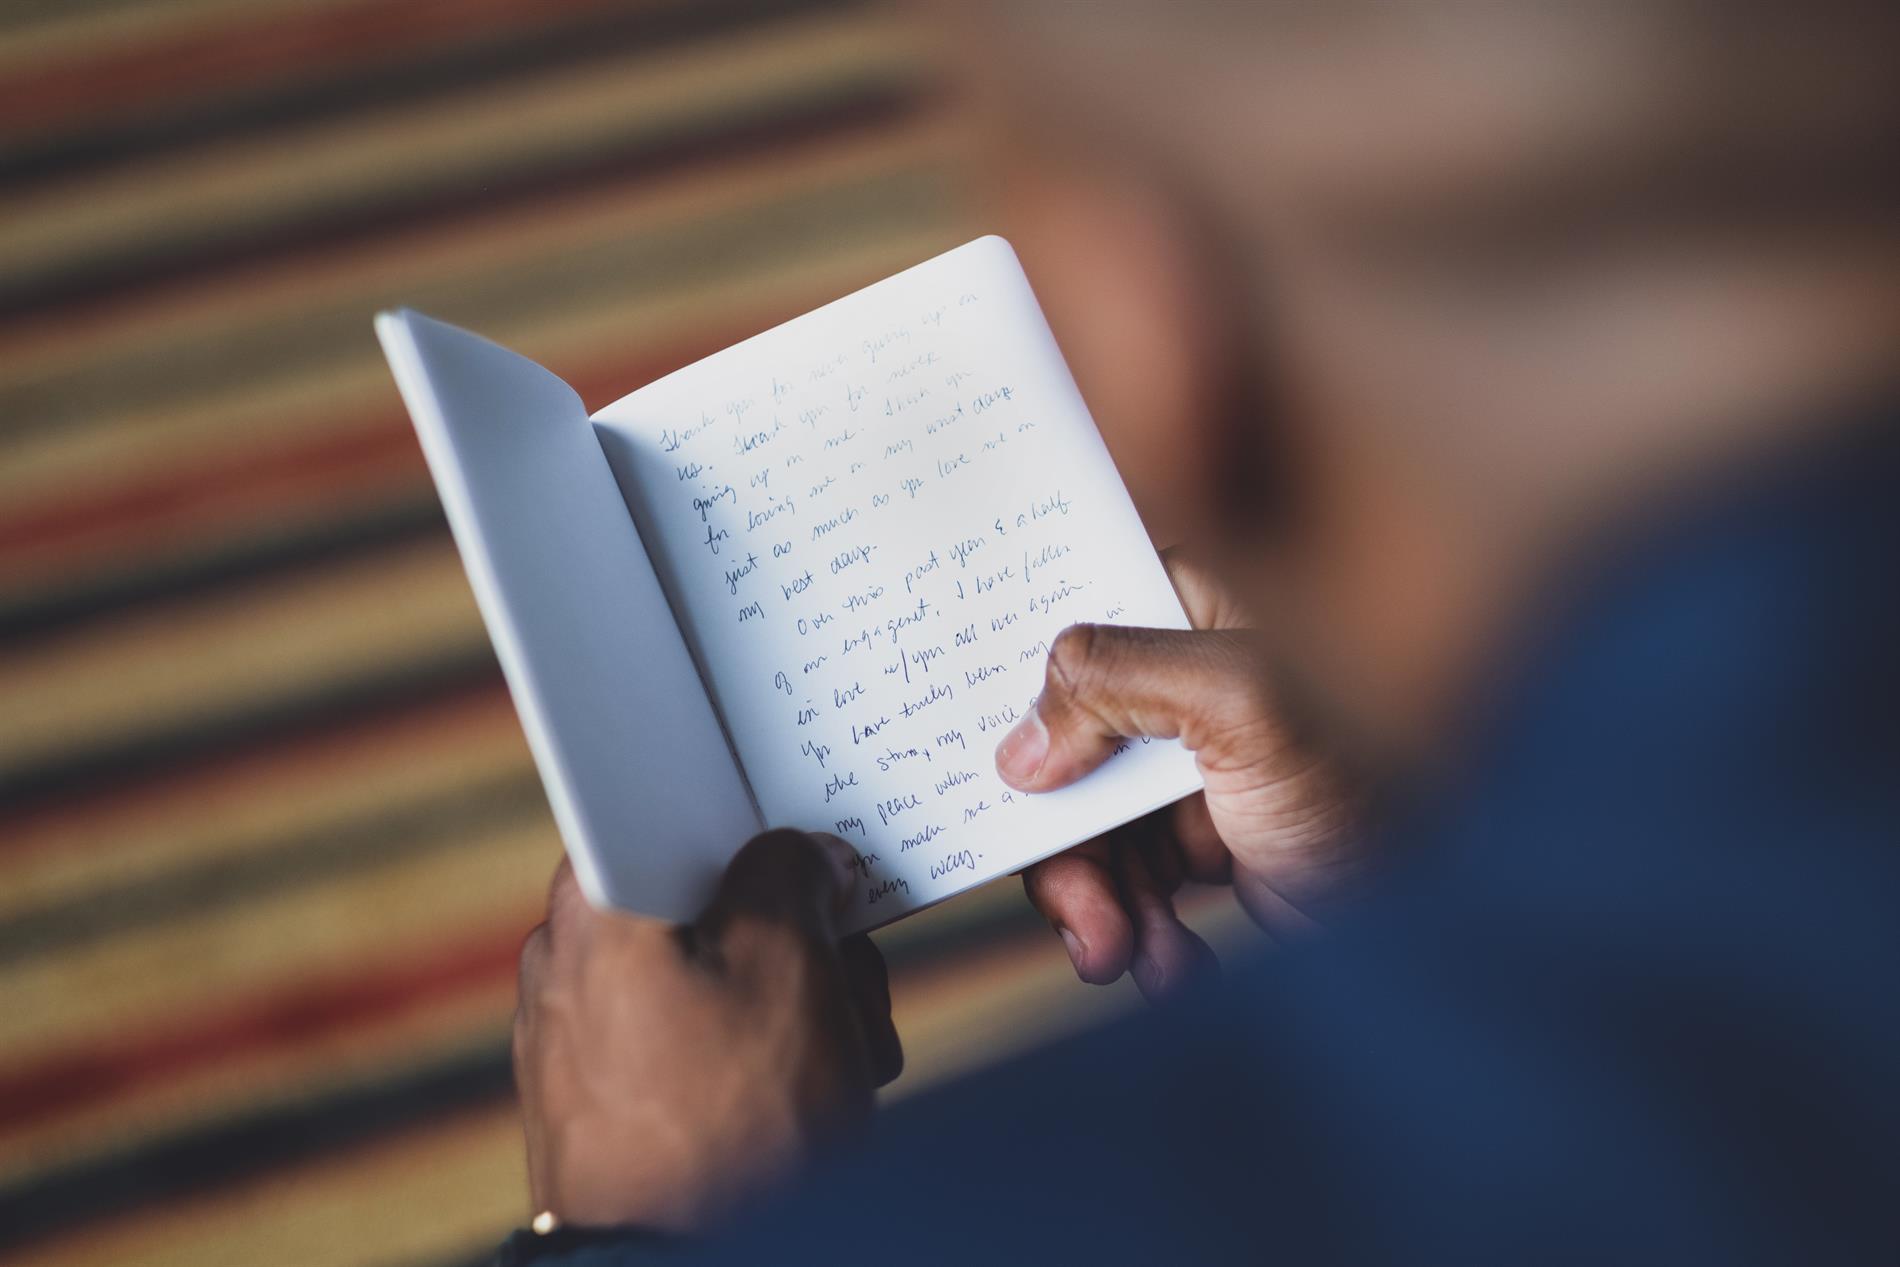 Thank you for never giving up on
us. Thank you for never
giving up on me. Thank you
for loving me on my worst days
just as much as you love me on
my best days.
Over this past year & a half
of our engagemet, I have fallen
in love w/you all over again.
You have truly been my in
the storm, my voice
my peace when in
You make me a
every way.